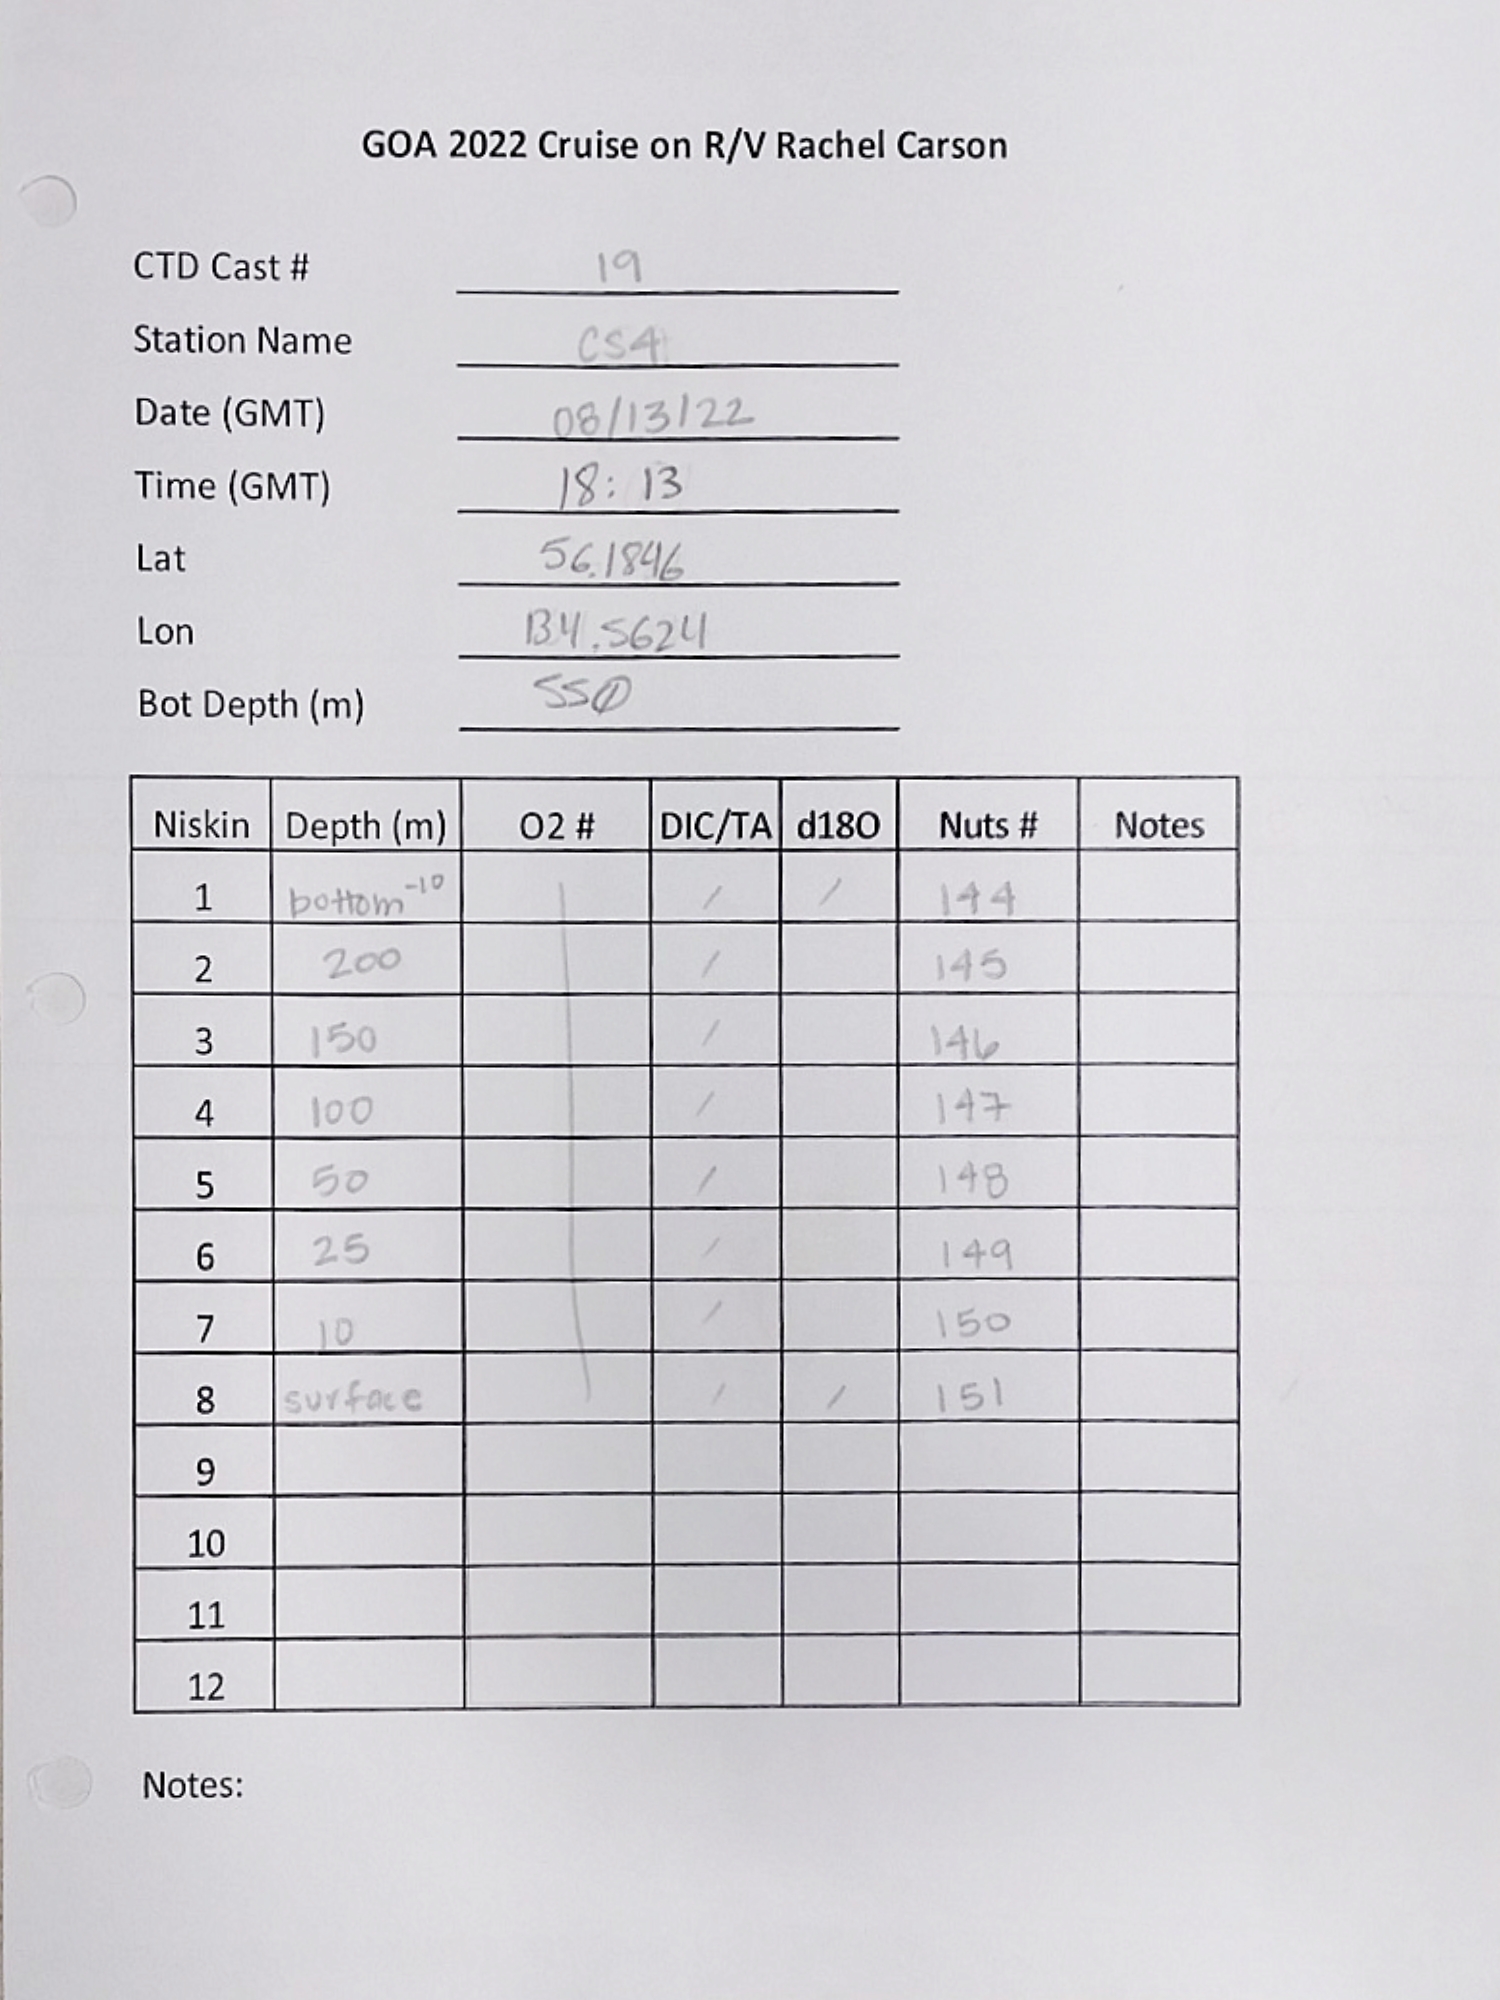 GOA 2022 Cruise on R/V Rachel Carson
CTD Cast # 19
Station Name CS4
Date (GMT) 08/13/22
Time (GMT) 18:13
Lat 56.1846
Lon 134.5624
Bot Depth (m) 550
Niskin Depth (m) O2 # DIC/TA d18O Nuts # Notes
1 bottom -10 | / / 144
2 200 / 145
3 150 / 146
4 100 / 147
5 50 / 148
6 25 / 149
7 10 / 150
8 surface / / 151
9
10
11
12
Notes: